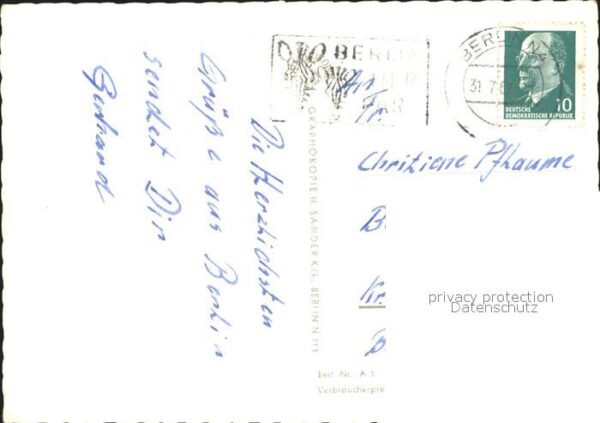 Die Herzlichsten
Grüße aus Berlin
sendet Dir
Gerhard
GRAPHOKOPIE H. SANDER K.G., BERLIN N 113
Best.-Nr. A 1
Verbraucherpre
BERLIN
BERLIN
31. 7. 6
DEUTSCHE
DEMOKRATISCHE REPUBLIK
10
An
Fr
Christiene Pflaume
B.
Kr.
B
privacy protection
Datenschutz